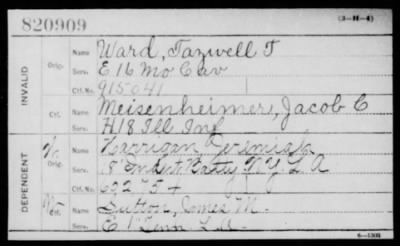 820909
(3-H-4)
INVALID
Orig.
Name Ward, Tazwell T
Serv. E 16 Mo Cav
Ctf. No. 915041
Ctf.
Name Meisenheimer, Jacob C
Serv. H 18 Ill Inf
DEPENDENT
Orig.
Name Harrigan Jeremiah
Serv. 18" Indpt Batty N.Y. L A
Ctf. No.
Ctf.
Name Sutton, James M.
Serv. E 1" Tenn L.A.